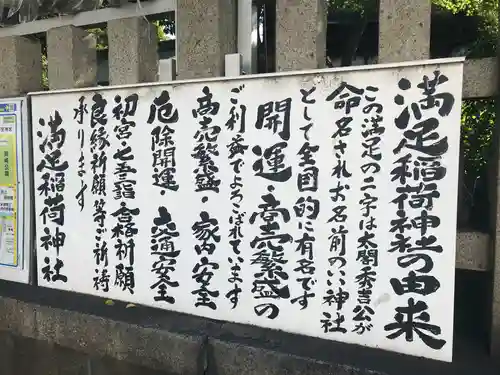 満足稲荷神社の由来
この満足の二字は太閤秀吉公が
命名されお名前のいい神社
として全国的に有名です
開運・商売繁盛の
ご利益でよろこばれています
商売繁盛・家内安全
厄除開運・交通安全
初宮・七五詣・合格祈願
良縁祈願等ご祈祷
承ります
満足稲荷神社